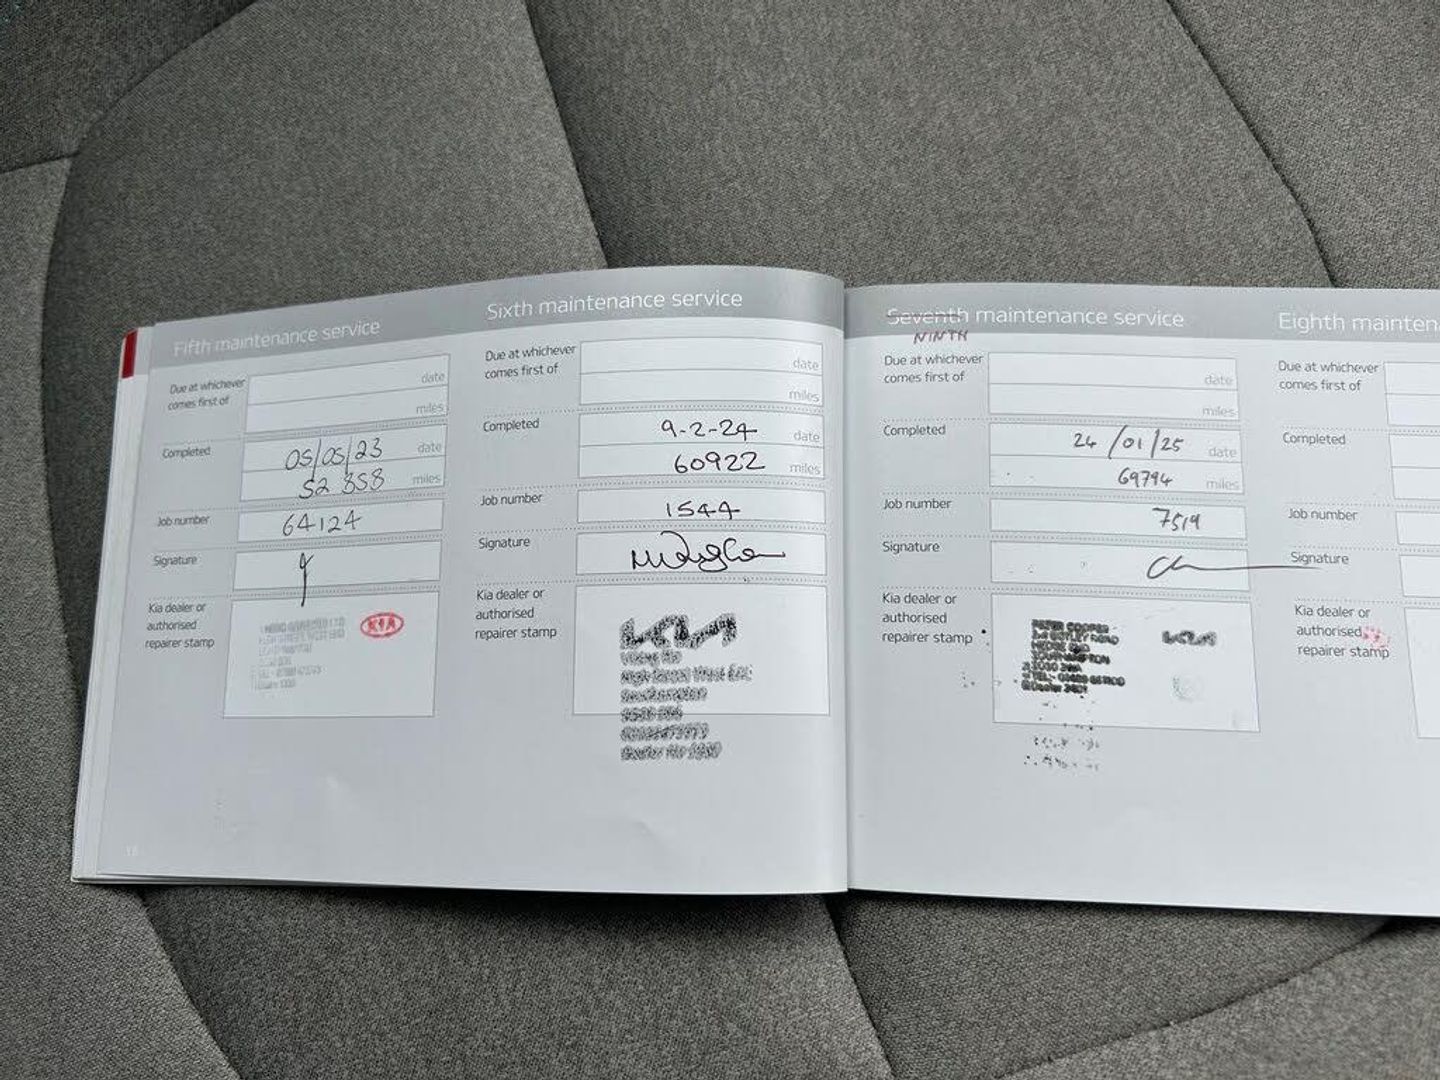 Fifth maintenance service
Due at whichever
comes first of
date
miles
Completed
05/05/23 date
52 858 miles
Job number
64124
Signature
Kia dealer or
authorised
repairer stamp
KIA
Sixth maintenance service
Due at whichever
comes first of
date
miles
Completed
9-2-24 date
60922 miles
Job number
1544
Signature
Kia dealer or
authorised
repairer stamp
KIA
Seventh maintenance service
NINTH
Due at whichever
comes first of
date
miles
Completed
24/01/25 date
69794 miles
Job number
7519
Signature
Kia dealer or
authorised
repairer stamp
PETER COOPER
KIA
Eighth mainten
Due at whichever
comes first of
Completed
Job number
Signature
Kia dealer or
authorised
repairer stamp